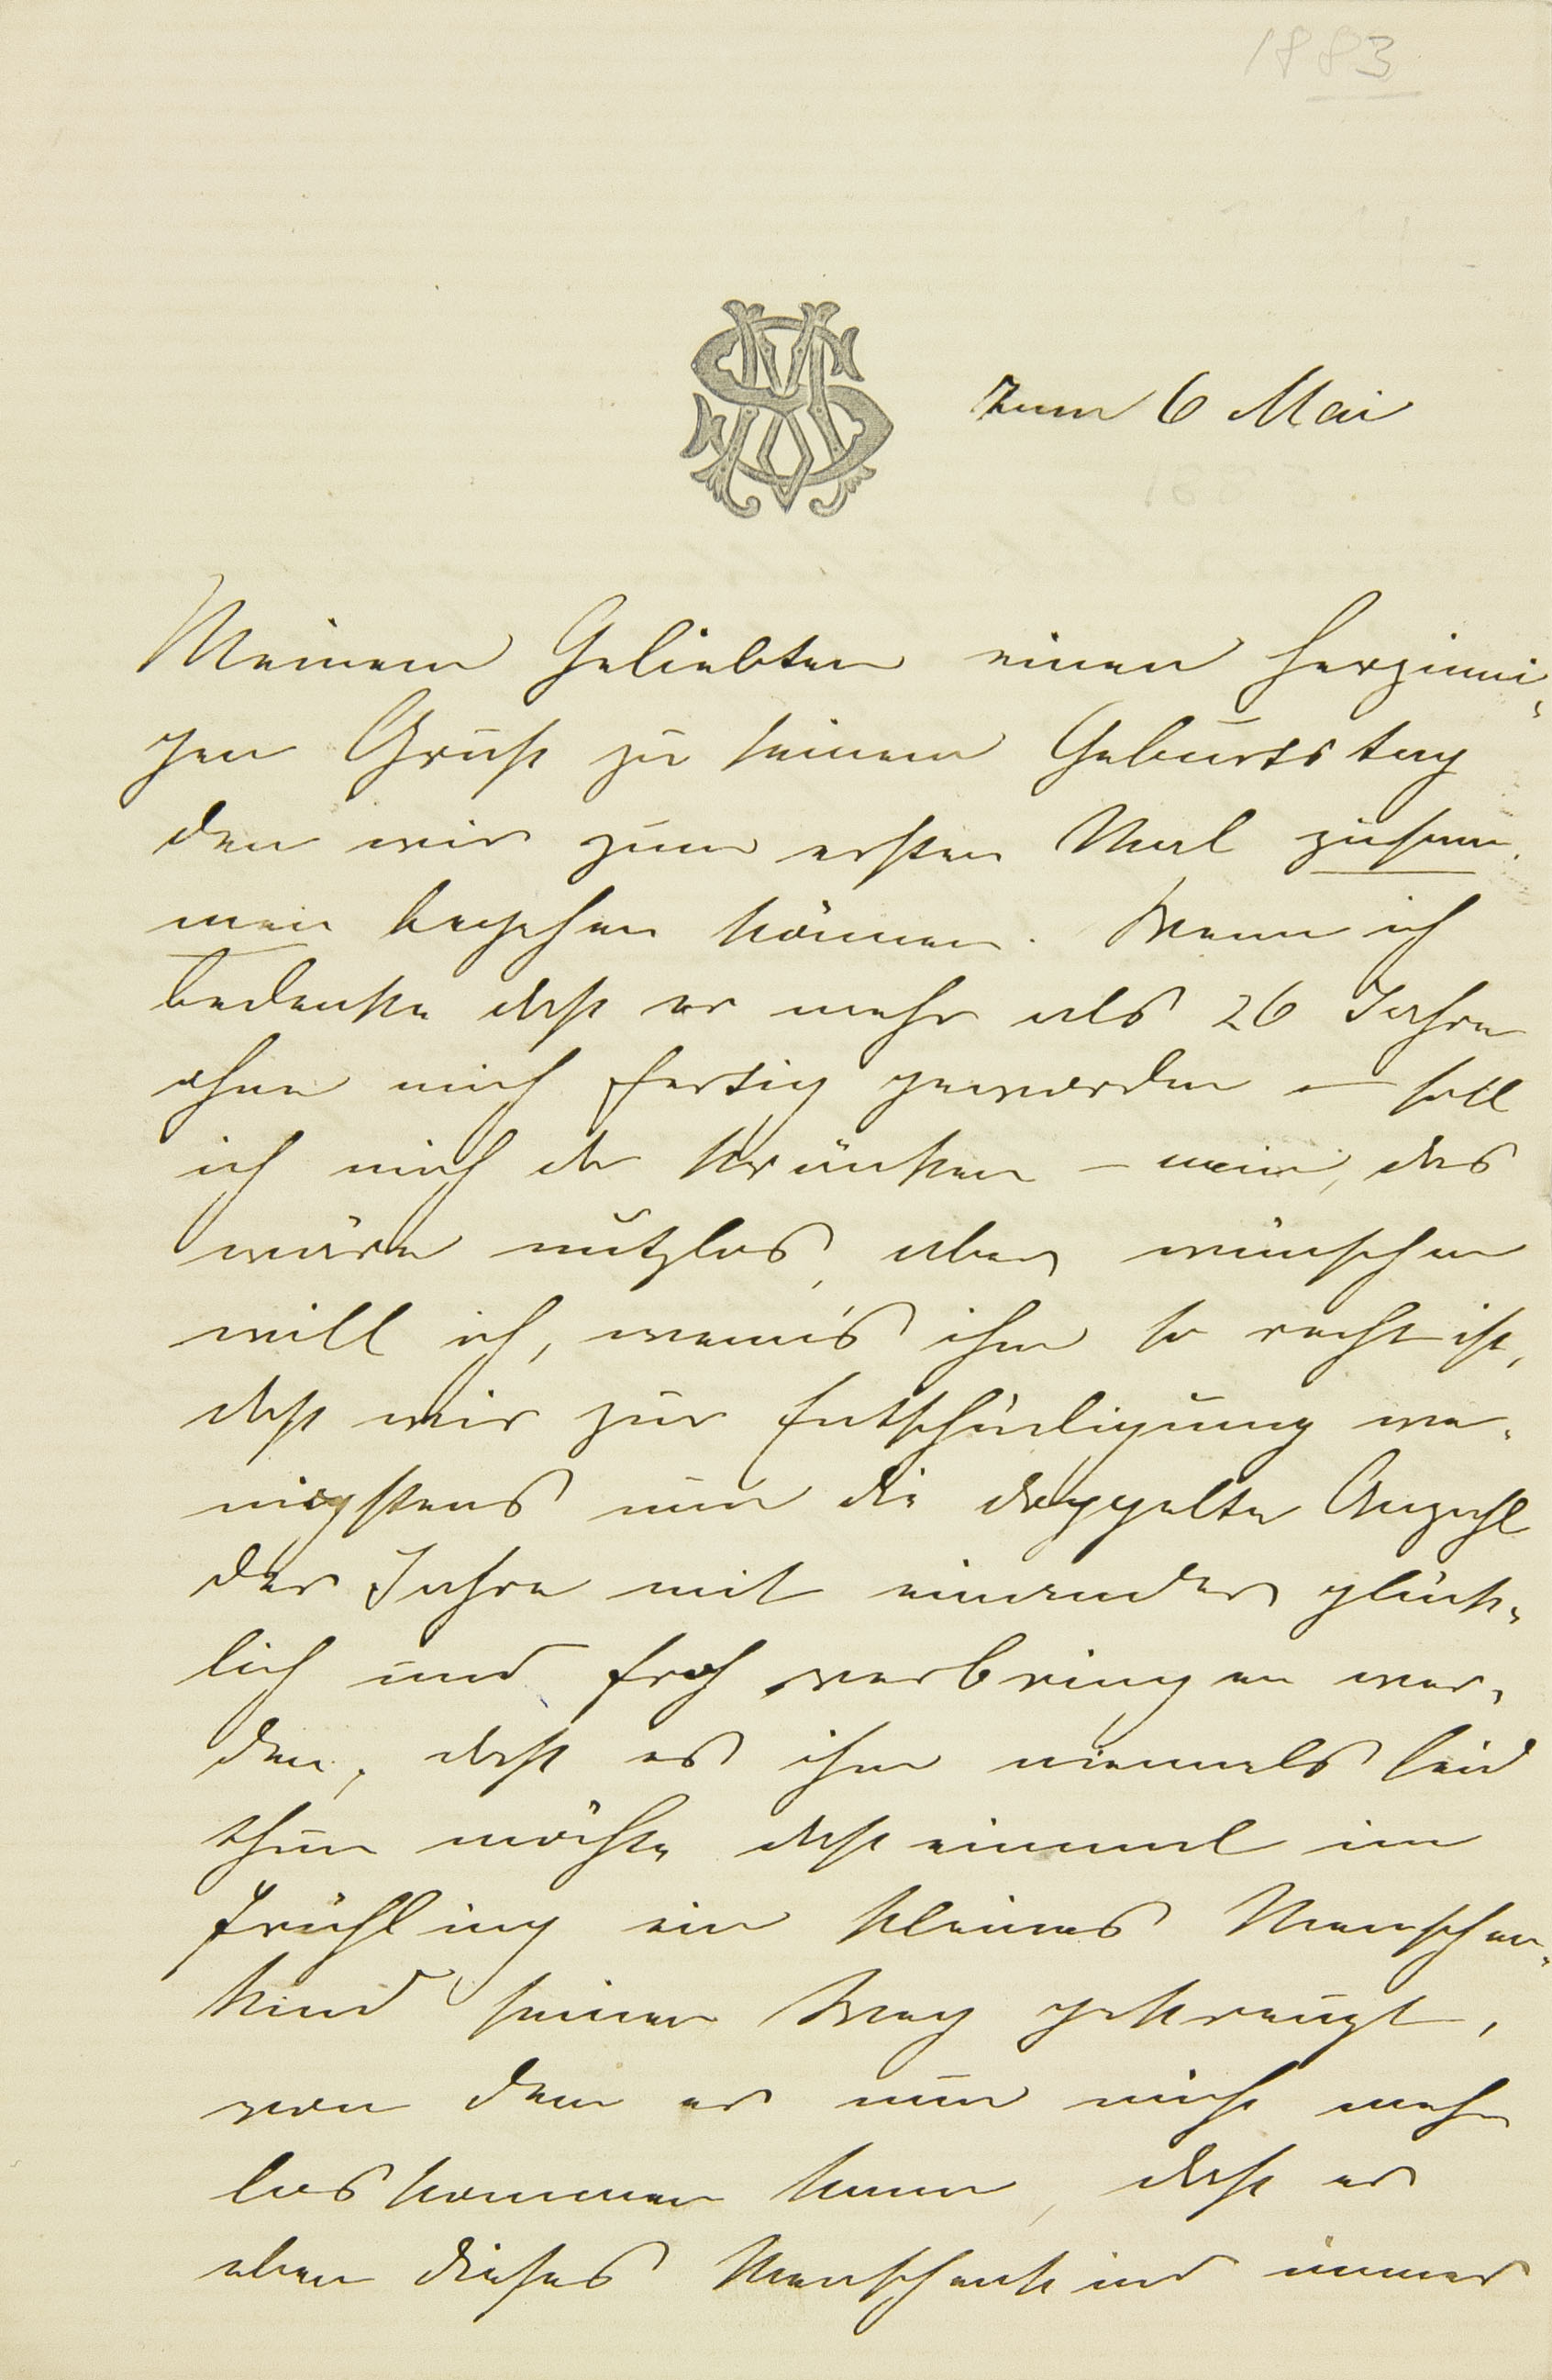 1883
zum 6 Mai
Meinem Geliebten einen herzinni-
gen Gruß zu seinem Geburtstag
den wir zum ersten Mal zusam-
men begehen können. Wenn ich
bedenke daß er mehr als 26 Jahre
ohne mich fertig geworden – soll
ich mich da kränken – nein, das
wäre nutzlos, aber wünschen
will ich, wenn's ihm so recht ist,
daß wir zur Entschädigung we-
nigstens nun die doppelte Anzahl
der Jahre mit einander glück-
lich und froh verbringen wer-
den, daß es ihm niemals leid
thun möchte daß einmal im
Frühling ein kleines Menschen-
kind seinen Weg gekreuzt,
von dem er nun nicht mehr
loskommen kann, daß er
eben dieses Menschenkind immer